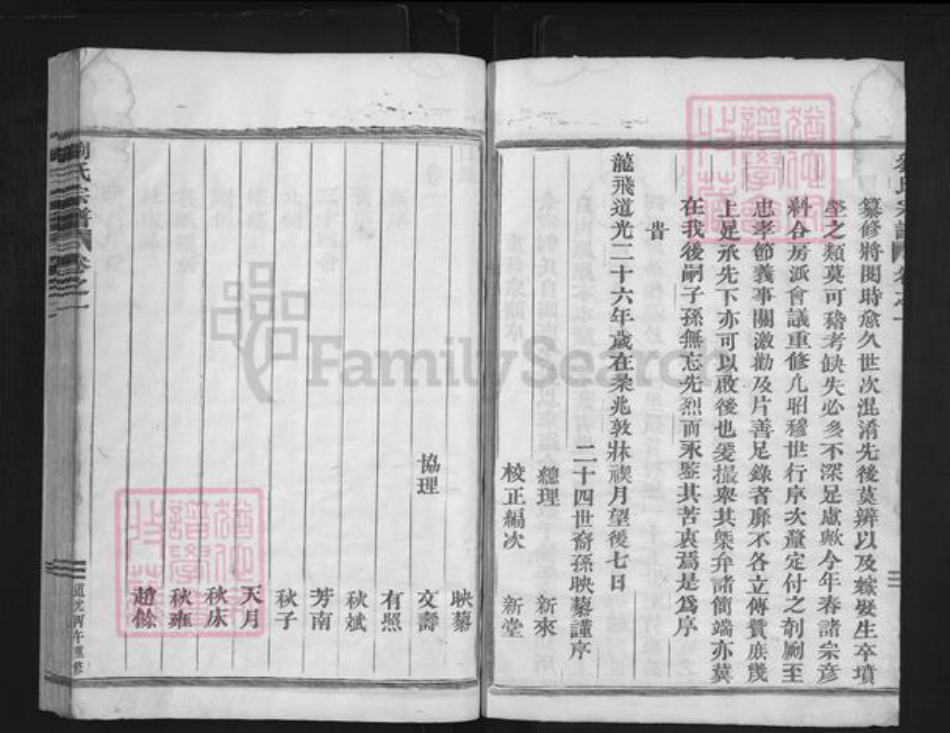 纂修將閱時愈久世次混淆先後莫辨以及嫁娶生卒墳
塋之類莫可稽考缺失必多不深足慮歟今年春諸宗彥
糾合房派會議重修凡昭穆世行序次釐定付之剞劂至
忠孝節義事關激勸及片善足錄者靡不各立傳贊庶幾
上足承先下亦可以啟後也爰撮舉其槩弁諸簡端亦冀
在我後嗣子孫無忘先烈而永鑒其苦衷焉是為序
旹
龍飛道光二十六年歲在柔兆敦牂禊月望後七日
二十四世裔孫映藜謹序
總理 新來
校正編次 新堂
映藜
協理 文壽
有照
秋斌
芳南
秋子
天月
秋床
秋雍
趙餘
劉氏宗譜 卷之一
道光丙午重修
FamilySearch